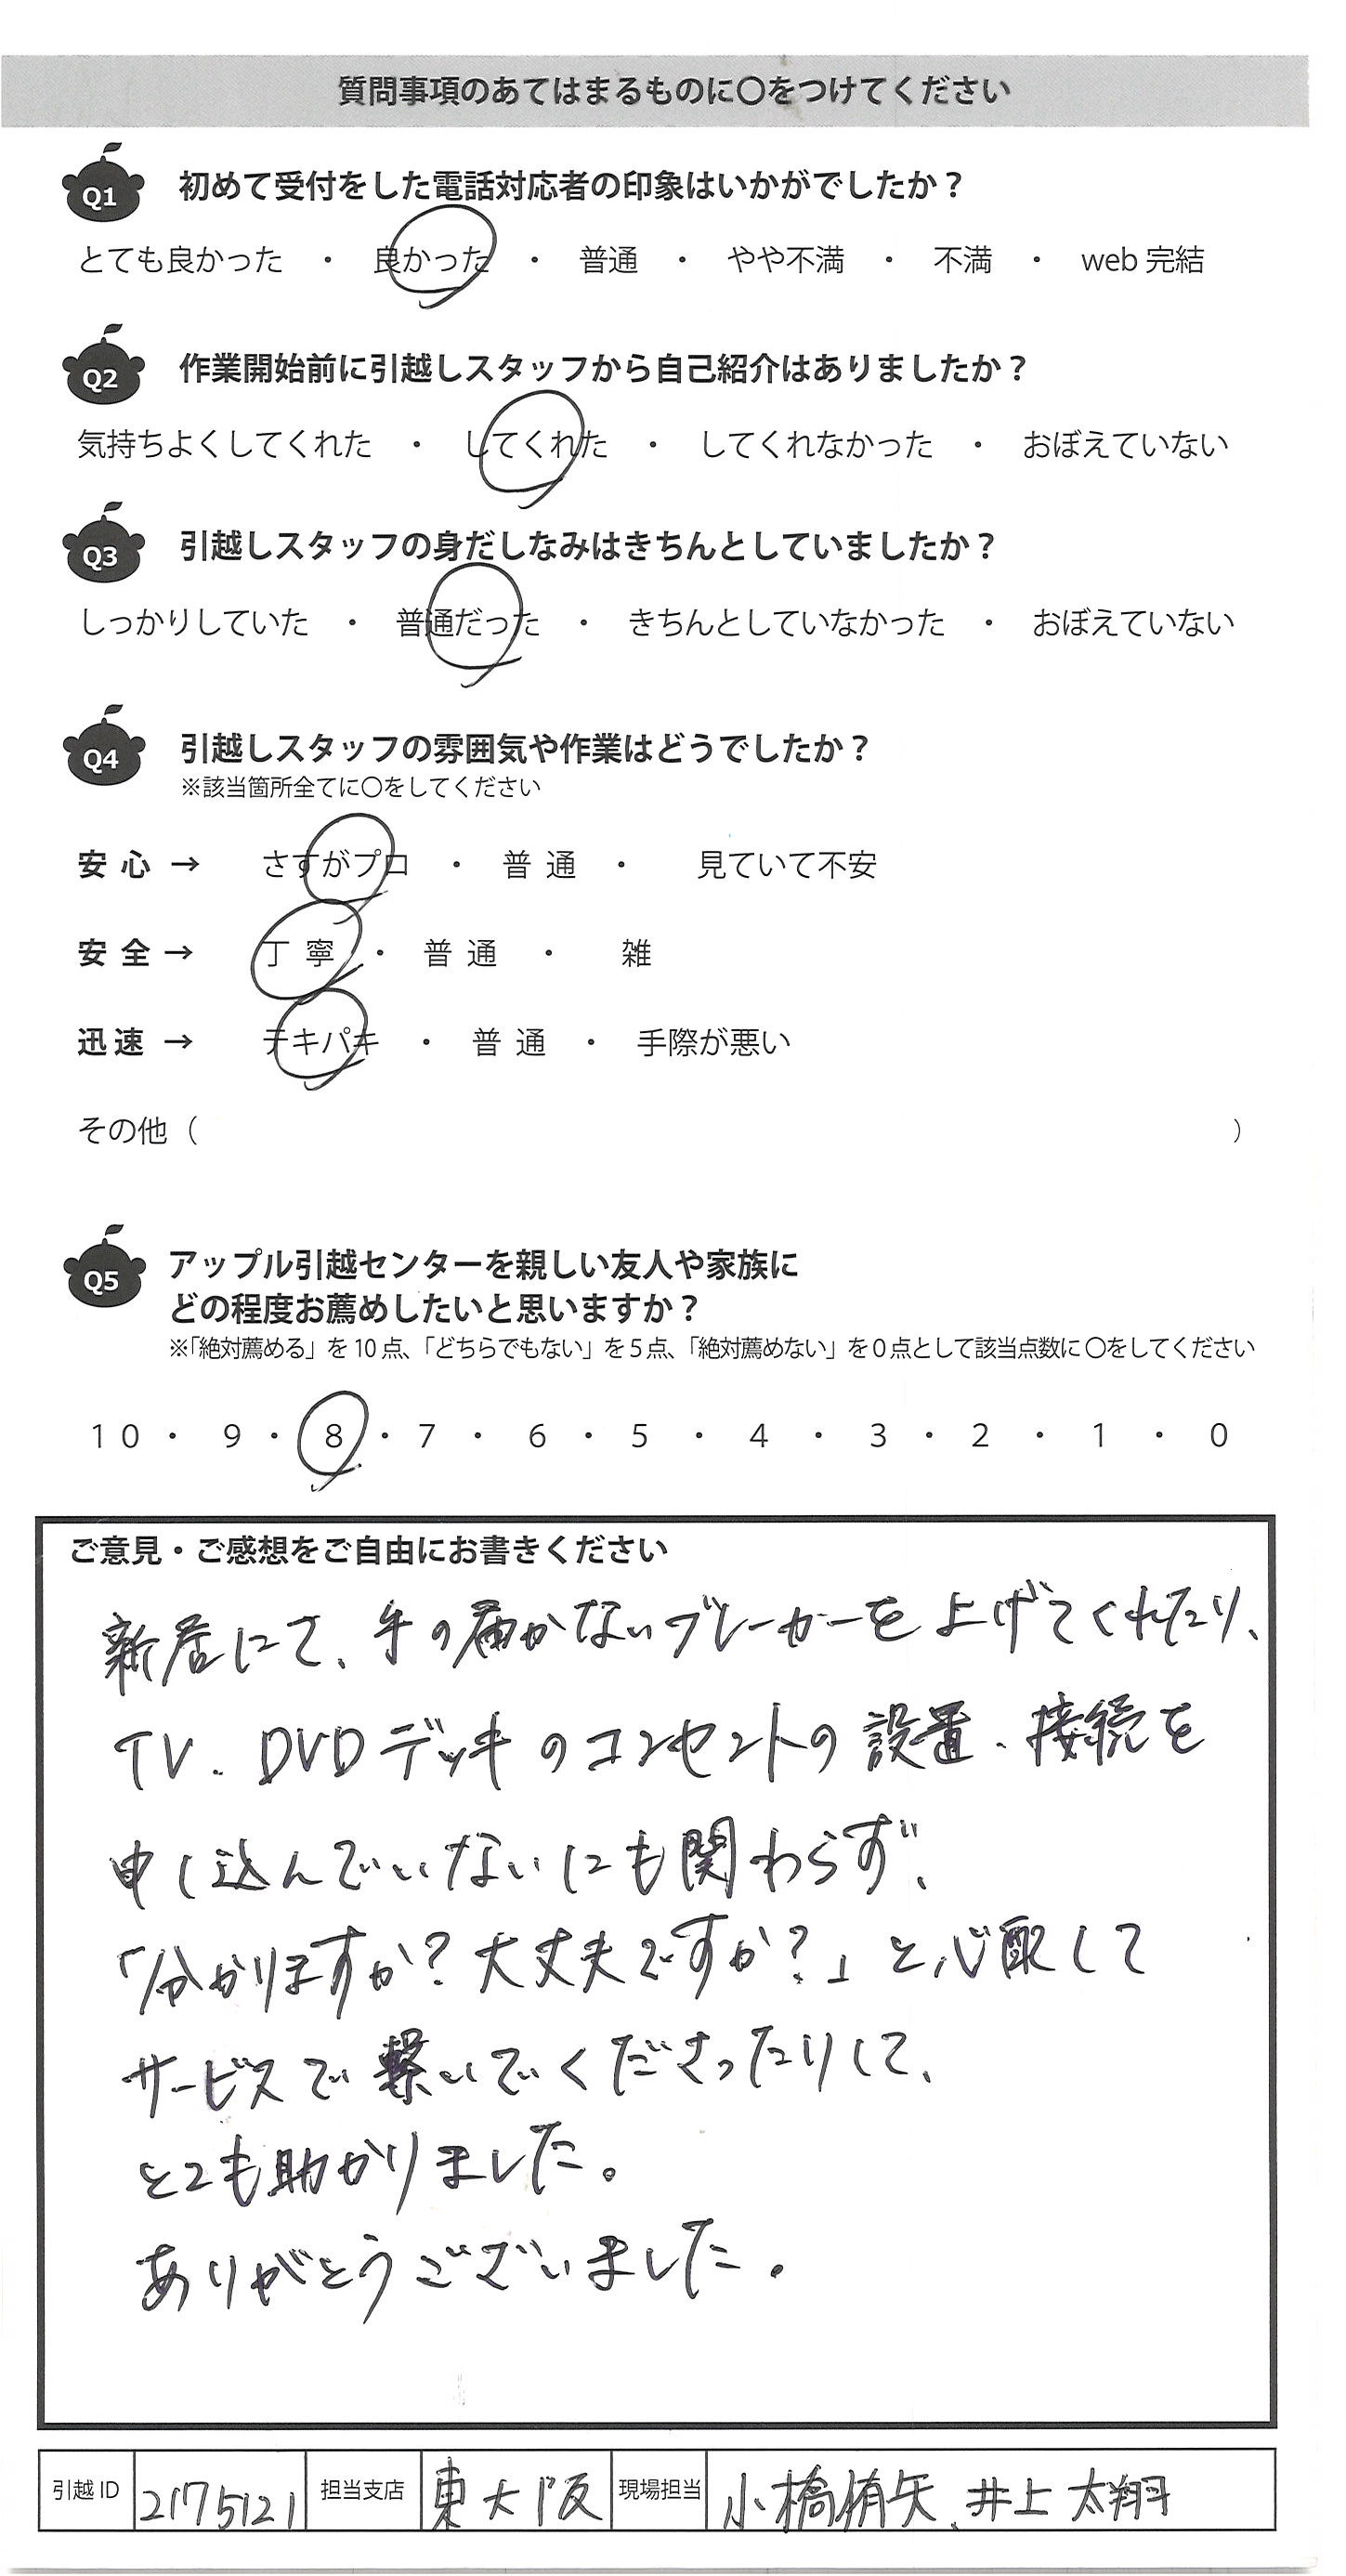 質問事項のあてはまるものに〇をつけてください
Q1 初めて受付をした電話対応者の印象はいかがでしたか？
とても良かった ・ 良かった ・ 普通 ・ やや不満 ・ 不満 ・ web 完結
Q2 作業開始前に引越しスタッフから自己紹介はありましたか？
気持ちよくしてくれた ・ してくれた ・ してくれなかった ・ おぼえていない
Q3 引越しスタッフの身だしなみはきちんとしていましたか？
しっかりしていた ・ 普通だった ・ きちんとしていなかった ・ おぼえていない
Q4 引越しスタッフの雰囲気や作業はどうでしたか？
※該当箇所全てに〇をしてください
安心 → さすがプロ ・ 普通 ・ 見ていて不安
安全 → 丁寧 ・ 普通 ・ 雑
迅速 → テキパキ ・ 普通 ・ 手際が悪い
その他（ ）
Q5 アップル引越センターを親しい友人や家族に
どの程度お薦めしたいと思いますか？
※「絶対薦める」を10点、「どちらでもない」を5点、「絶対薦めない」を0点として該当点数に〇をしてください
10 ・ 9 ・ 8 ・ 7 ・ 6 ・ 5 ・ 4 ・ 3 ・ 2 ・ 1 ・ 0
ご意見・ご感想をご自由にお書きください
新居にて、手の届かないブレーカーを上げてくれたり、
TV、DVDデッキのコンセントの設置、接続を
申し込んでいないにも関わらず、
「分かりますか？大丈夫ですか？」と心配して
サービスで繋いでくださったりして、
とても助かりました。
ありがとうございました。
引越ID 2175121 担当支店 東大阪 現場担当 小橋侑矢、井上太翔